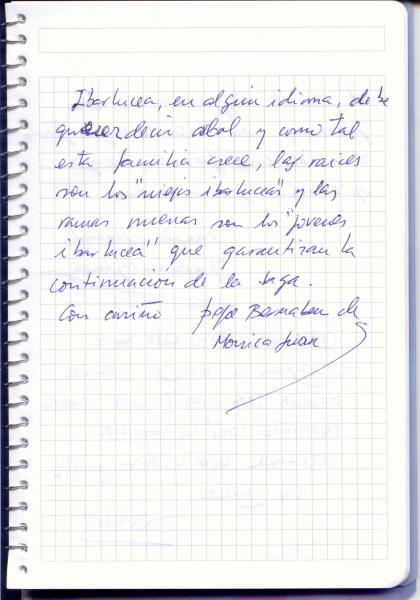 Ibarlucea, en algún idioma, debe
querer decir arbol y como tal
esta familia crece, las raices
son los "viejos ibarluceas" y las
ramas nuevas son los "jovenes
ibarlucea" que garantizan la
continuación de la saga.
Con cariño pepe Bernabeu de
Monica Juan